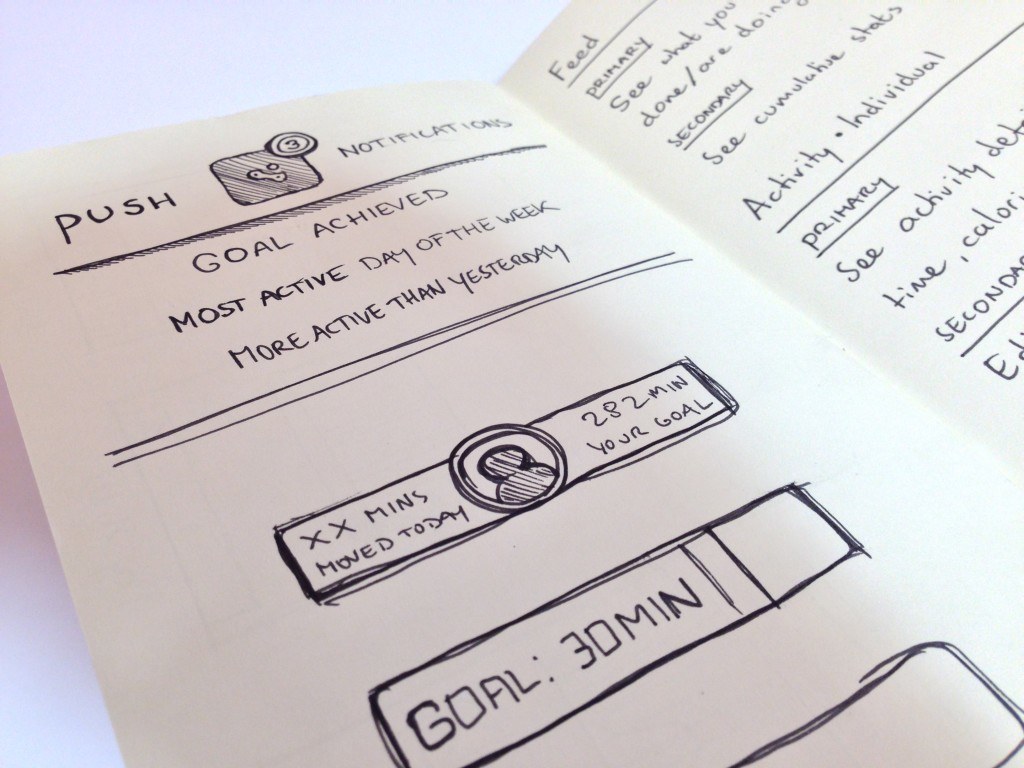 PUSH 3 NOTIFICATIONS
GOAL ACHIEVED
MOST ACTIVE DAY OF THE WEEK
MORE ACTIVE THAN YESTERDAY
XX MINS
MOVED TODAY
282 MIN
YOUR GOAL
GOAL: 30MIN
Feed
PRIMARY
See what you
done/are doing
SECONDARY
See cumulative stats
Activity • Individual
PRIMARY
See activity
time, calori
SECONDAR